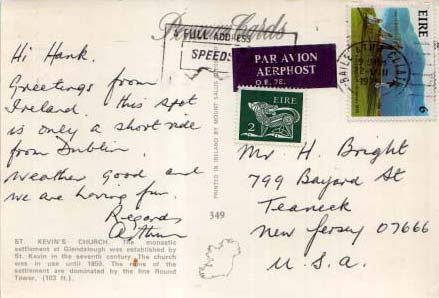 Hi Hank.
Greetings from
Ireland. This spot
is only a short ride
from Dublin.
Weather good and
we are having fun.
Regards
Arthur
ST. KEVIN'S CHURCH. The monastic
settlement at Glendalough was established by
St. Kevin in the seventh century. The church
was in use until 1850. The ruins of the
settlement are dominated by the fine Round
Tower. (103 ft.)
Cards
FULL ADDRESS
SPEEDS
PAR AVION
AERPHOST
EIRE
2
ÉIRE
6
BAILE ÁTHA CLIATH
PRINTED IN IRELAND BY MOUNT SALUS
349
Mr H. Bright
799 Bayard St
Teaneck
New Jersey 07666
U.S.A.